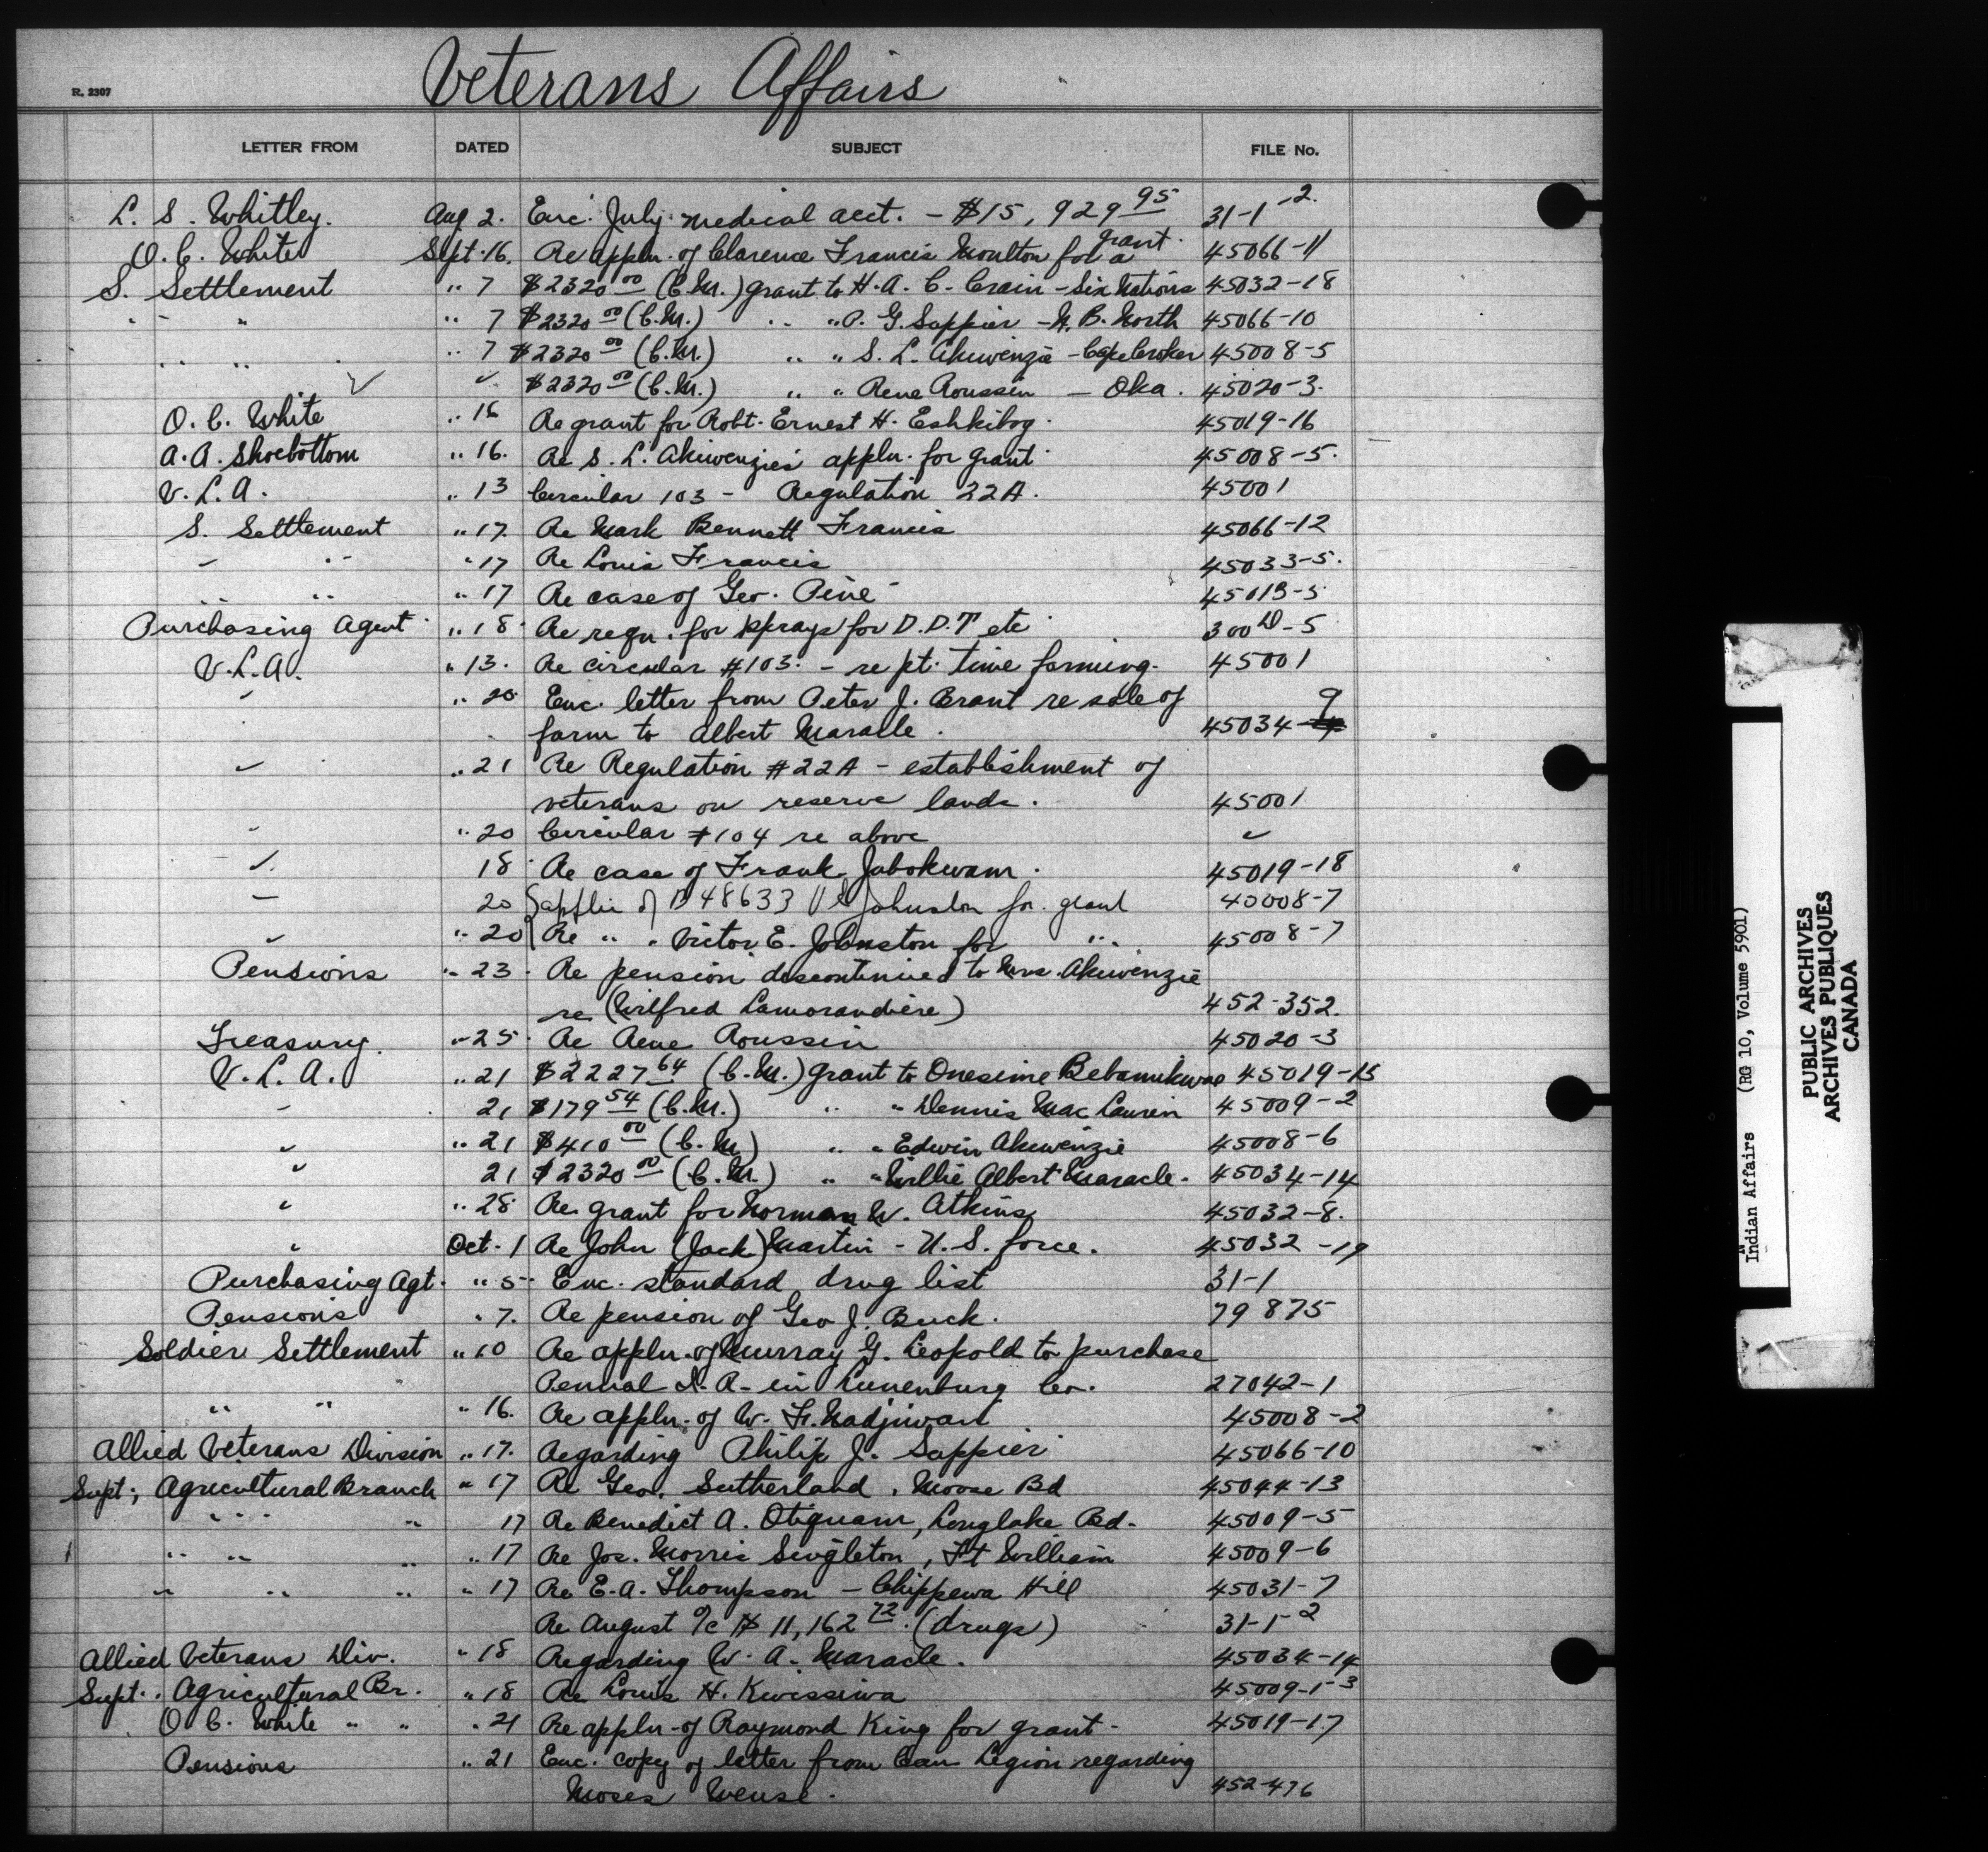 Veterans Affairs
R. 2307
LETTER FROM DATED SUBJECT FILE No.
L. S. Whitley. Aug 2. Enc. July medical acct. - $15,929 95 31-1-2.
O. C. White Sept. 16. Re appln. of Clarence Francis Moulton for a grant. 45066-11
S. Settlement " 7 $2320 00 (C.M.) grant to H. A. C. Crain - Six Nations 45032-18
" " " 7 $2320 00 (C.M.) " " P. G. Sappier - N. B. North 45066-10
" " " 7 $2320 00 (C.M.) " " S. L. Akiwenzie - Cape Croker 45008-5
✓ ✓ $2320 00 (C.M.) " " Rene Roussin - Oka. 45020-3.
O. C. White " 16 Re grant for Robt. Ernest H. Eshkibog. 45019-16
A. A. Shoebottom " 16. Re S. L. Akiwenzies appln. for grant 45008-5.
V. L. A. " 13 Circular 103 - Regulation 22A. 45001
S. Settlement " 17. Re Mark Bennett Francis 45066-12
" " " 17 Re Louis Francis 45033-5.
" " " 17 Re case of Geo. Pine 45013-5
Purchasing Agent " 18 Re requ. for sprays for D.D.T etc 300 D-5
V.L.A. " 13. Re circular #103. - re pt. time farming. 45001
" " 20 Enc. letter from Peter J. Brant re sale of
farm to Albert Maracle. 45034-9
✓ " 21 Re Regulation #22A - establishment of
veterans on reserve lands. 45001
" " 20 Circular #104 re above ✓
✓ 18 Re case of Frank Jabokwam. 45019-18
— 20 applic of B 48633 V E Johnston for grant 45008-7
✓ " 20 Re " " Victor E. Johnston for " 45008-7
Pensions " 23. Re pension discontinued to Mrs. Akiwenzie
re (Wilfred Lamorandiere) 452-352.
Treasury. " 25. Re Rene Roussin 45020-3
V. L. A. " 21 $2227 64 (C.M.) grant to Onesime Bebamikwae 45019-15
" 21 $179 54 (C.M.) " " Dennis MacLaurin 45009-2
" " 21 $410 00 (C.M.) " " Edwin Akiwenzie 45008-6
" 21 $2320 00 (C.M.) " " Willie Albert Maracle. 45034-14
" " 28 Re grant for Norman W. Atkins 45032-8.
" Oct. 1 Re John (Jack) Martin - U.S. force. 45032-19
Purchasing Agt. " 5. Enc. standard drug list 31-1
Pensions " 7. Re pension of Geo J. Buck. 79875
Soldier Settlement " 10 Re appln. of Murray G. Leopold to purchase
Pennal I.R. in Lunenburg Co. 27042-1
" " " 16. Re appln. of W. F. Nadjiwan 45008-2
Allied Veterans Division " 17. Regarding Philip J. Sappier 45066-10
Supt; Agricultural Branch " 17 Re Geo. Sutherland, Moose Bd 45044-13
" " 17 Re Benedict A. Otiquam, Longlake Bd. 45009-5
" " " " 17 Re Jos. Morris Singleton, Ft William 45009-6
" " " " 17 Re E. A. Thompson - Chippewa Hill 45031-7
Re August a/c $11,162 72. (drugs) 31-1-2
Allied Veterans Div. " 18 Regarding W. A. Maracle. 45034-14
Supt.. Agricultural Br. " 18 Re Louis H. Kwissiwa 45009-1-3
O C. White " " " 21 Re appln of Raymond King for grant - 45019-17
Pensions " 21 Enc. copy of letter from Can Legion regarding
Moses Wense. 452-476
Indian Affairs (RG 10, Volume 5901)
PUBLIC ARCHIVES
ARCHIVES PUBLIQUES
CANADA